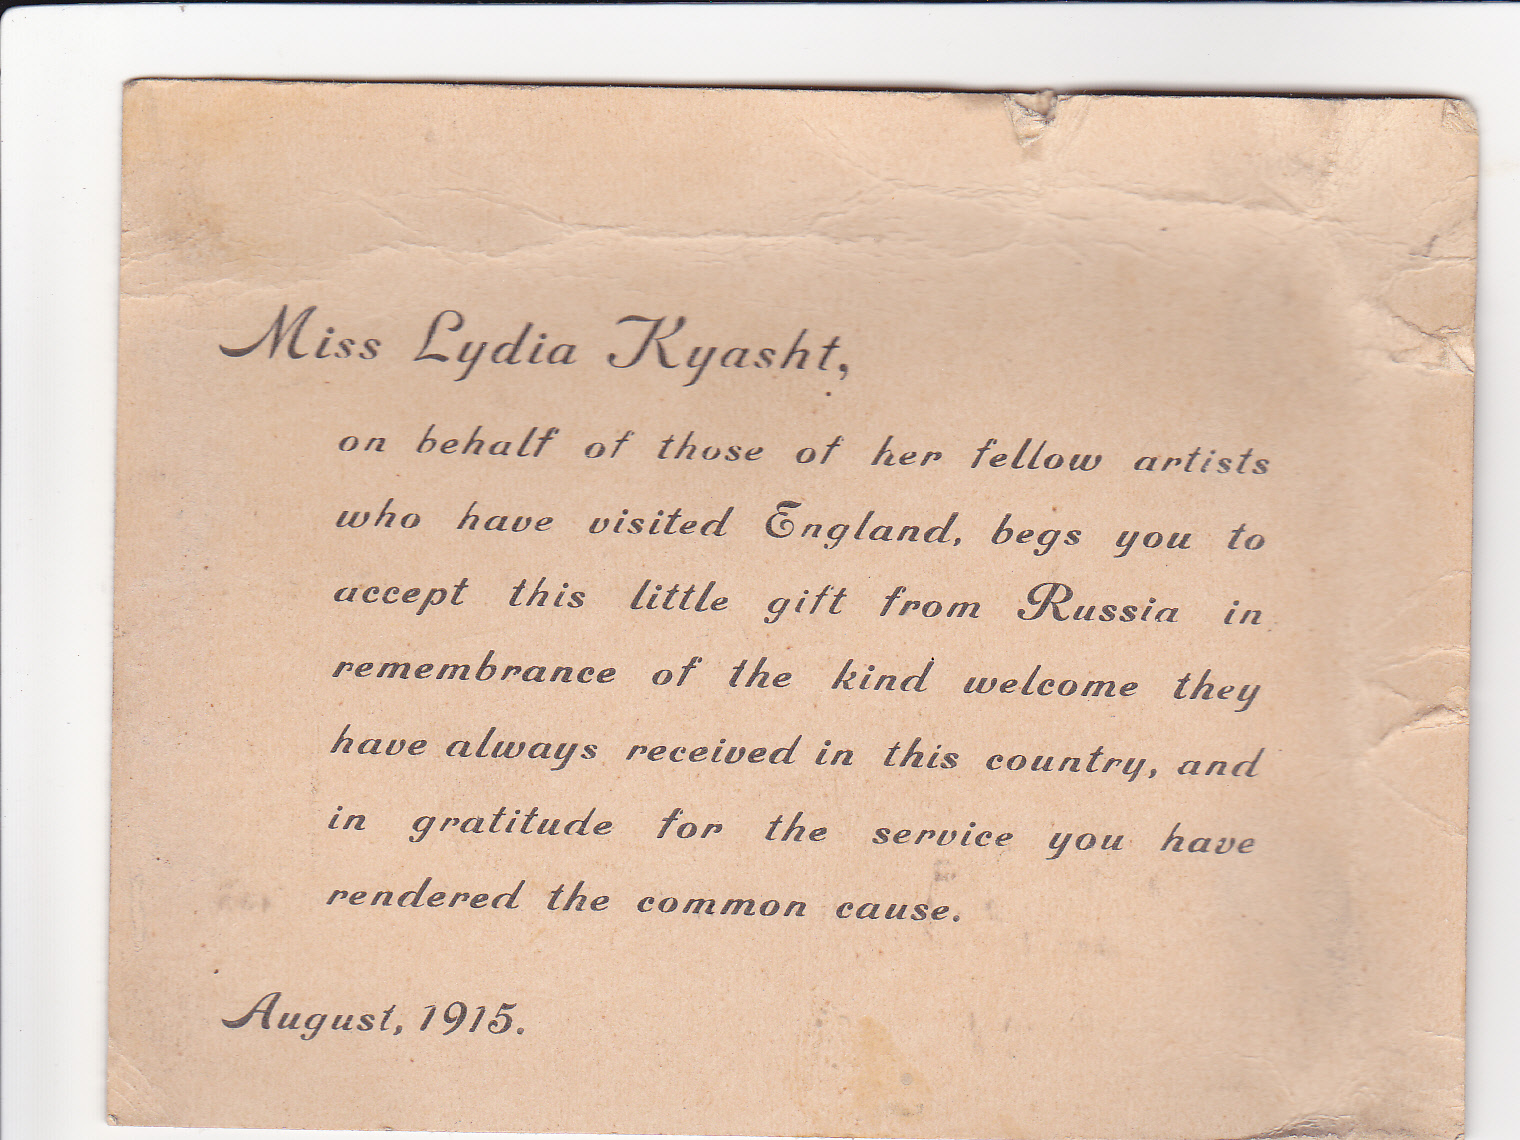 Miss Lydia Kyasht,
on behalf of those of her fellow artists
who have visited England, begs you to
accept this little gift from Russia in
remembrance of the kind welcome they
have always received in this country, and
in gratitude for the service you have
rendered the common cause.
August, 1915.